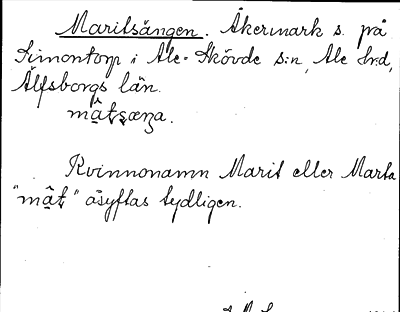 Maritsängen. Åkermark s. på
Simontorp i Ale-Skövde s:n, Ale hrd,
Älfsborgs län.
Kvinnonamn Marit eller Marta
"mât̤" åsyftas tydligen.